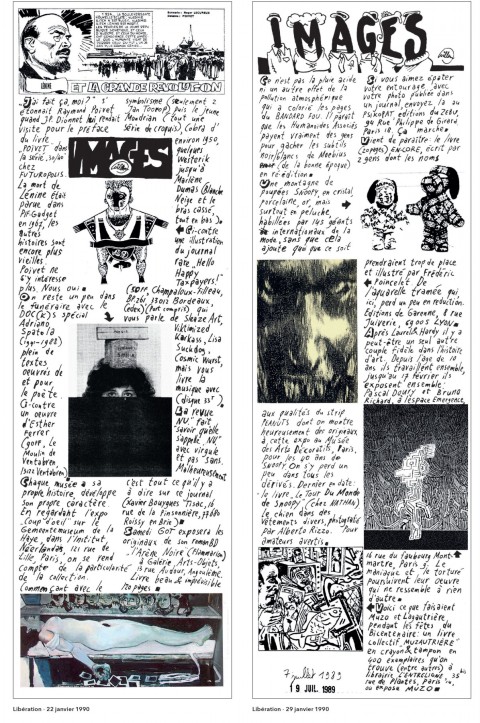 LÉNINE
ET LA GRANDE REVOLUTION
J'ai fait ça, moi? s'
étonnait Raymond Poïvet
quand J.P. Dionnet lui rendait
visite pour le préface
du livre
POÏVET dans
la série
chez
FUTUROPOLIS.
La mort de
Lénine était
parue dans
PIF-Gadget
en
autres
histoires sont
encore plus
vieilles
Poïvet ne
s'y intéresse
plus. Nous oui
On reste un peu dans
le funéraire avec le
DOC(K)S spécial
Adriano
Spatola
plein de
textes
œuvrés de
et pour
le poète.
Ci-contre
un œuvre
d'Esther
Ferrer
Le
Moulin de
Ventabren
13122 Ventabren)
Chaque musée a sa
propre histoire, développe
son propre caractère.
En regardant l'expo
"Coup d'œil" sur le
Gemeentemuseum de la
Haye, dans l'Institut
Néerlandais, 121 rue de
Lille, Paris, on se rend
compte de la particularité
de la collection.
Commençant avec le
symbolisme (seulement 2
Jan Toorop) puis le jeune
Mondrian (tout une
série de croquis) Cobra d'
IMAGES
environ 1950,
quelques
Westerik
jusqu'à
Marlène
Dumas (Blanche
Neige et le
bras cassé,
tout en bas)
Ci-contre
une illustration
du journal
rate "Hello
Happy
Taxpayers!"
Champaloux-Filleau,
Bordeaux,
cedex) (port compris) qui
vous parle de Sleaze Art,
Viktimized
Karkass, Lisa
Suckdog,
Cosmic Wurst,
mais vous
livre la
musique avec
(disque 33t)
La revue
NU," fait
savoir qu'elle
s'appelle NU"
avec virgule
et pas sans.
Malheureusement
c'est tout ce qu'il y a
à dire sur ce journal
rue de la Pinsonnière, 77680
Roissy en Brie)
Samedi GOT exposera les
originaux de son roman BD
"l'Arène Noire" (Flammarion)
à Galerie Arts-Objets,
rue Audour, Angoulême.
Livre beau & impossible
pages
Libération · 22 janvier 1990
IMAGES
Ce n'est pas la pluie acide
ni un autre effet de la
pollution atmosphérique
qui a colorié les pages
du BANDARD FOU. Il paraît
que les Humanoïdes Associés
payent vraiment des gens
pour gâcher les subtils
noir/blancs de Moebius
(de la bonne époque)
en ré-édition
Une montagne de
poupées Snoopy, en cristal,
porcelaine, or, mais
surtout en peluche,
habillées par 145 géants
internationaux de la
mode, sans que cela
ajoute quoi que ce soit
aux qualités du strip
PEANUTS dont on montre
heureusement des originaux
à cette expo au Musée
des Arts Décoratifs, Paris,
pour les 40 ans de
Snoopy. On s'y perd un
peu dans tous les
dérivés. Dernier en date:
le livre Le Tour Du Monde
de Snoopy (chez NATHAN)
Le chien dans des
vêtements divers, photographié
par Alberto Rizzo. Pour
amateurs avertis
Si vous aimez épater
votre entourage avec
votre photo publiée dans
un journal, envoyez la au
PSIKOPAT éditions du Zébu,
94 Rue Philippe de Girard
Paris 18. Ça marche
Vient de paraître: le livre
(corges) ENCORE, écrit par
2 gens dont les noms
prendraient trop de place
et illustré par Frédéric
Poincelé De
l'aquarelle tramée qui
ici, perd un peu en réduction.
Editions de Garenne, 8 rue
Juiverie, 69005 Lyon
Après Laurel & Hardy il y a
peut-être un seul autre
couple fidèle dans l'histoire
d'art. Depuis l'âge de 10
ans ils travaillent ensemble,
jusqu'au 17 février ils
exposent ensemble:
Pascal Doury et Bruno
Richard, à l'espace Emergence,
16 rue du Faubourg Mont-
martre, Paris 9. Le
maniaque et le torturé
poursuivent leur œuvre
qui ne ressemble à rien
d'autre
Voici ce que faisaient
Muzo et Logautrière,
pendant les fêtes du
Bicentenaire: un livre
collectif, MUZAUTRIÈRE
en crayon & tampon en
400 exemplaires qu'on
trouve (entre autres) à
librairie L'ENTRECLIGNE, 38
rue de Plantes, Paris 14,
où expose MUZO
7 juillet 1989
19 JUIL. 1989
Libération · 29 janvier 1990